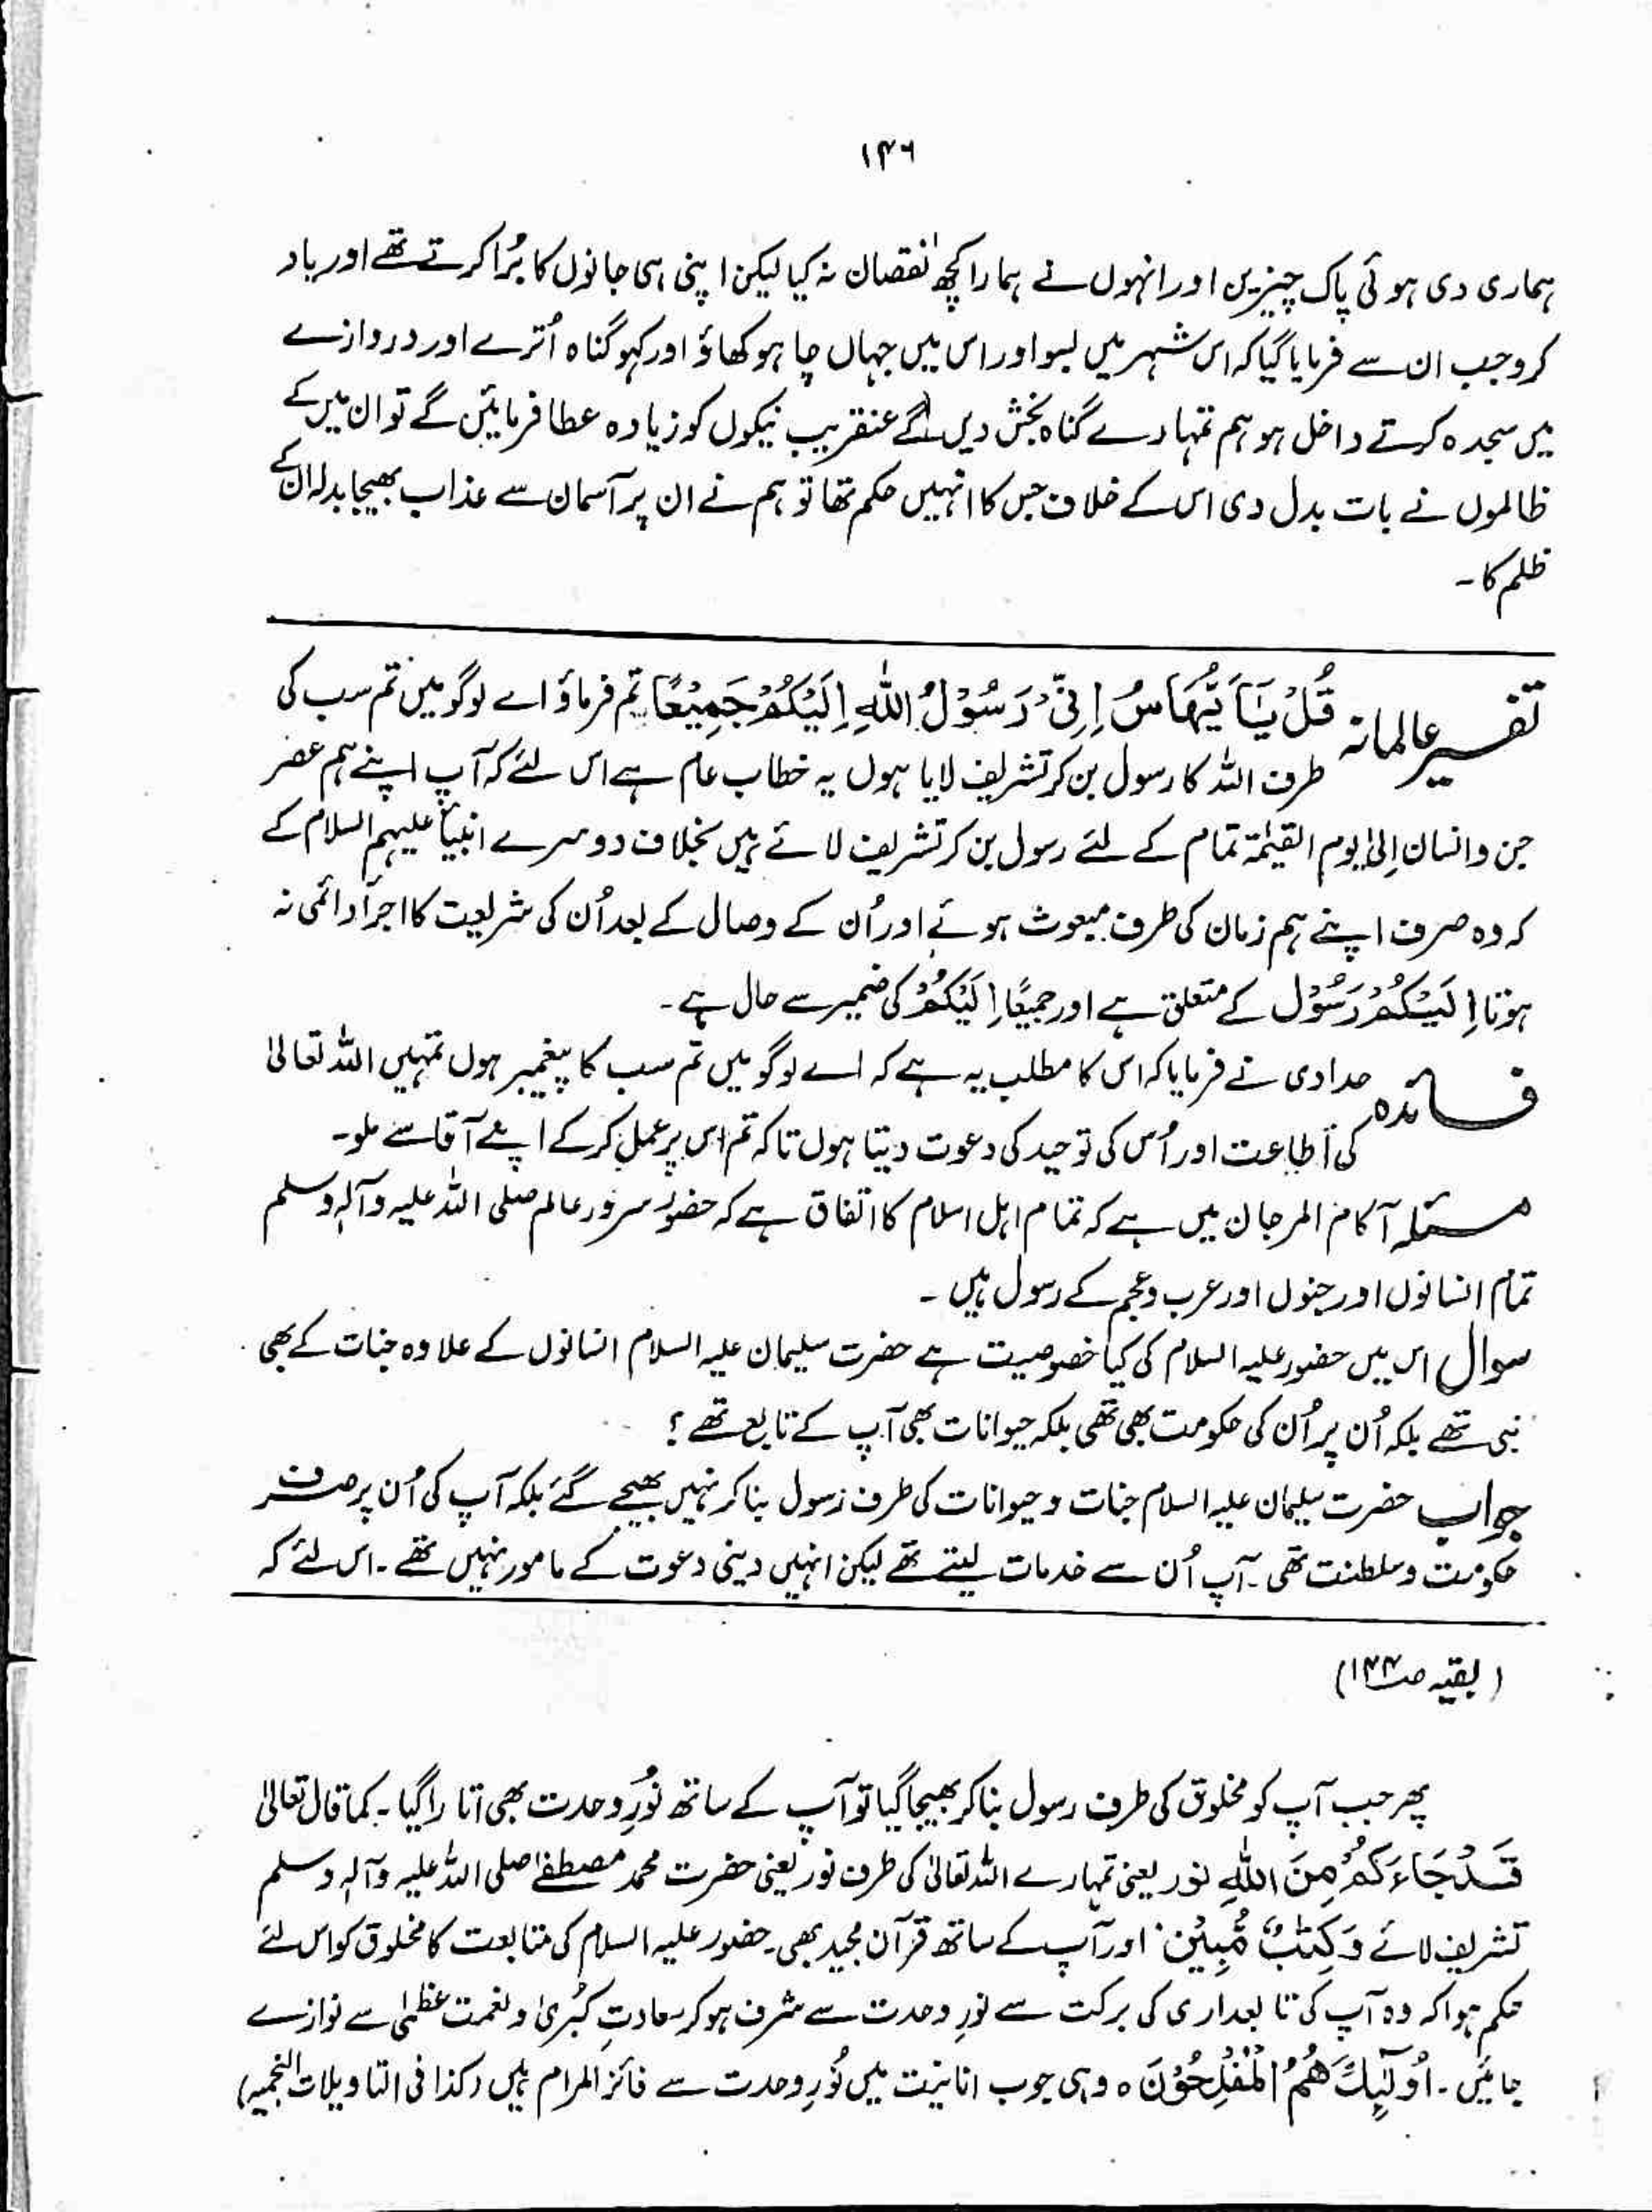 ۱۴۶
ہماری دی ہوئی پاک چیزیں اور انہوں نے ہمارا کچھ نقصان نہ کیا لیکن اپنی ہی جانوں کا بُرا کرتے تھے اور یاد
کرو جب ان سے فرمایا گیا کہ اس شہر میں بسو اور اس میں جہاں چاہو کھاؤ اور کہو گناہ اُترے اور دروازے
میں سجدہ کرتے داخل ہو ہم تمہارے گناہ بخش دیں گے عنقریب نیکوں کو زیادہ عطا فرمائیں گے تو ان میں کے
ظالموں نے بات بدل دی اس کے خلاف جس کا انہیں حکم تھا تو ہم نے ان پر آسمان سے عذاب بھیجا بدلہ ان کے
ظلم کا ۔
تفسیر عالمانہ قُلْ يَـٰٓاَ يُّهَاسُ اِنِّیْ رَسُوْلُ اللّٰهِ اِلَيْكُمْ جَمِيْعًا تم فرماؤ اے لوگو میں تم سب کی
طرف اللہ کا رسول بن کر تشریف لایا ہوں یہ خطاب عام ہے اس لئے کہ آپ اپنے ہم عصر
جن و انسان اِلیٰ یوم القیٰمۃ تمام کے لئے رسول بن کر تشریف لائے ہیں بخلاف دوسرے انبیأ علیہم السلام کے
کہ وہ صرف اپنے ہم زمان کی طرف مبعوث ہوئے اور اُن کے وصال کے بعد اُن کی شریعت کا اجرأ دائمی نہ
ہوتا اِلَيْكُمْ رَسُوْل کے متعلق ہے اور جمیعًا اِلَيْكُمْ کی ضمیر سے حال ہے ۔
فـــائدہ حدادی نے فرمایا کہ اس کا مطلب یہ ہے کہ اے لوگو میں تم سب کا پیغمبر ہوں تمہیں اللہ تعالیٰ
کی اطاعت اور اُس کی توحید کی دعوت دیتا ہوں تاکہ تم اس پر عمل کر کے اپنے آقا سے ملو۔
مسئلہ آکام المرجان میں ہے کہ تمام اہل اسلام کا اتفاق ہے کہ حضور سرور عالم صلی اللہ علیہ وآلہٖ وسلم
تمام انسانوں اور جنوں اور عرب و عجم کے رسول ہیں ۔
سوال اس میں حضور علیہ السلام کی کیا خصوصیت ہے حضرت سلیمان علیہ السلام انسانوں کے علاوہ جنات کے بھی
نبی تھے بلکہ اُن پر اُن کی حکومت بھی تھی بلکہ حیوانات بھی آپ کے تابع تھے ؟
جواب حضرت سلیمان علیہ السلام جنات و حیوانات کی طرف رسول بنا کر نہیں بھیجے گئے بلکہ آپ کی اُن پر صرف
حکومت و سلطنت تھی ۔ آپ اُن سے خدمات لیتے تھے لیکن انہیں دینی دعوت کے مامور نہیں تھے ۔ اس لئے کہ
( بقیہ صـ ۱۴۴)
پھر جب آپ کو مخلوق کی طرف رسول بنا کر بھیجا گیا تو آپ کے ساتھ نُورِ وحدت بھی اتارا گیا ۔ کما قال تعالیٰ
قَدْ جَاءَكُمْ مِنَ اللّٰهِ نور یعنی تمہارے اللہ تعالیٰ کی طرف نور یعنی حضرت محمد مصطفےٰ صلی اللہ علیہ وآلہٖ وسلم
تشریف لائے وَكِتٰبٌ مُّبِيْن اور آپ کے ساتھ قرآن مجید بھی ۔ حضور علیہ السلام کی متابعت کا مخلوق کو اس لئے
حکم ہوا کہ وہ آپ کی تابعداری کی برکت سے نورِ وحدت سے مشرف ہو کر سعادتِ کُبریٰ و نعمت عظمٰی سے نوازے
جائیں ۔ اُولٰٓئِكَ هُمُ الْمُفْلِحُوْنَ ہ وہی جوب انانیت میں نُورِ وحدت سے فائز المرام ہیں (کذا فی التاویلات النجمیہ)